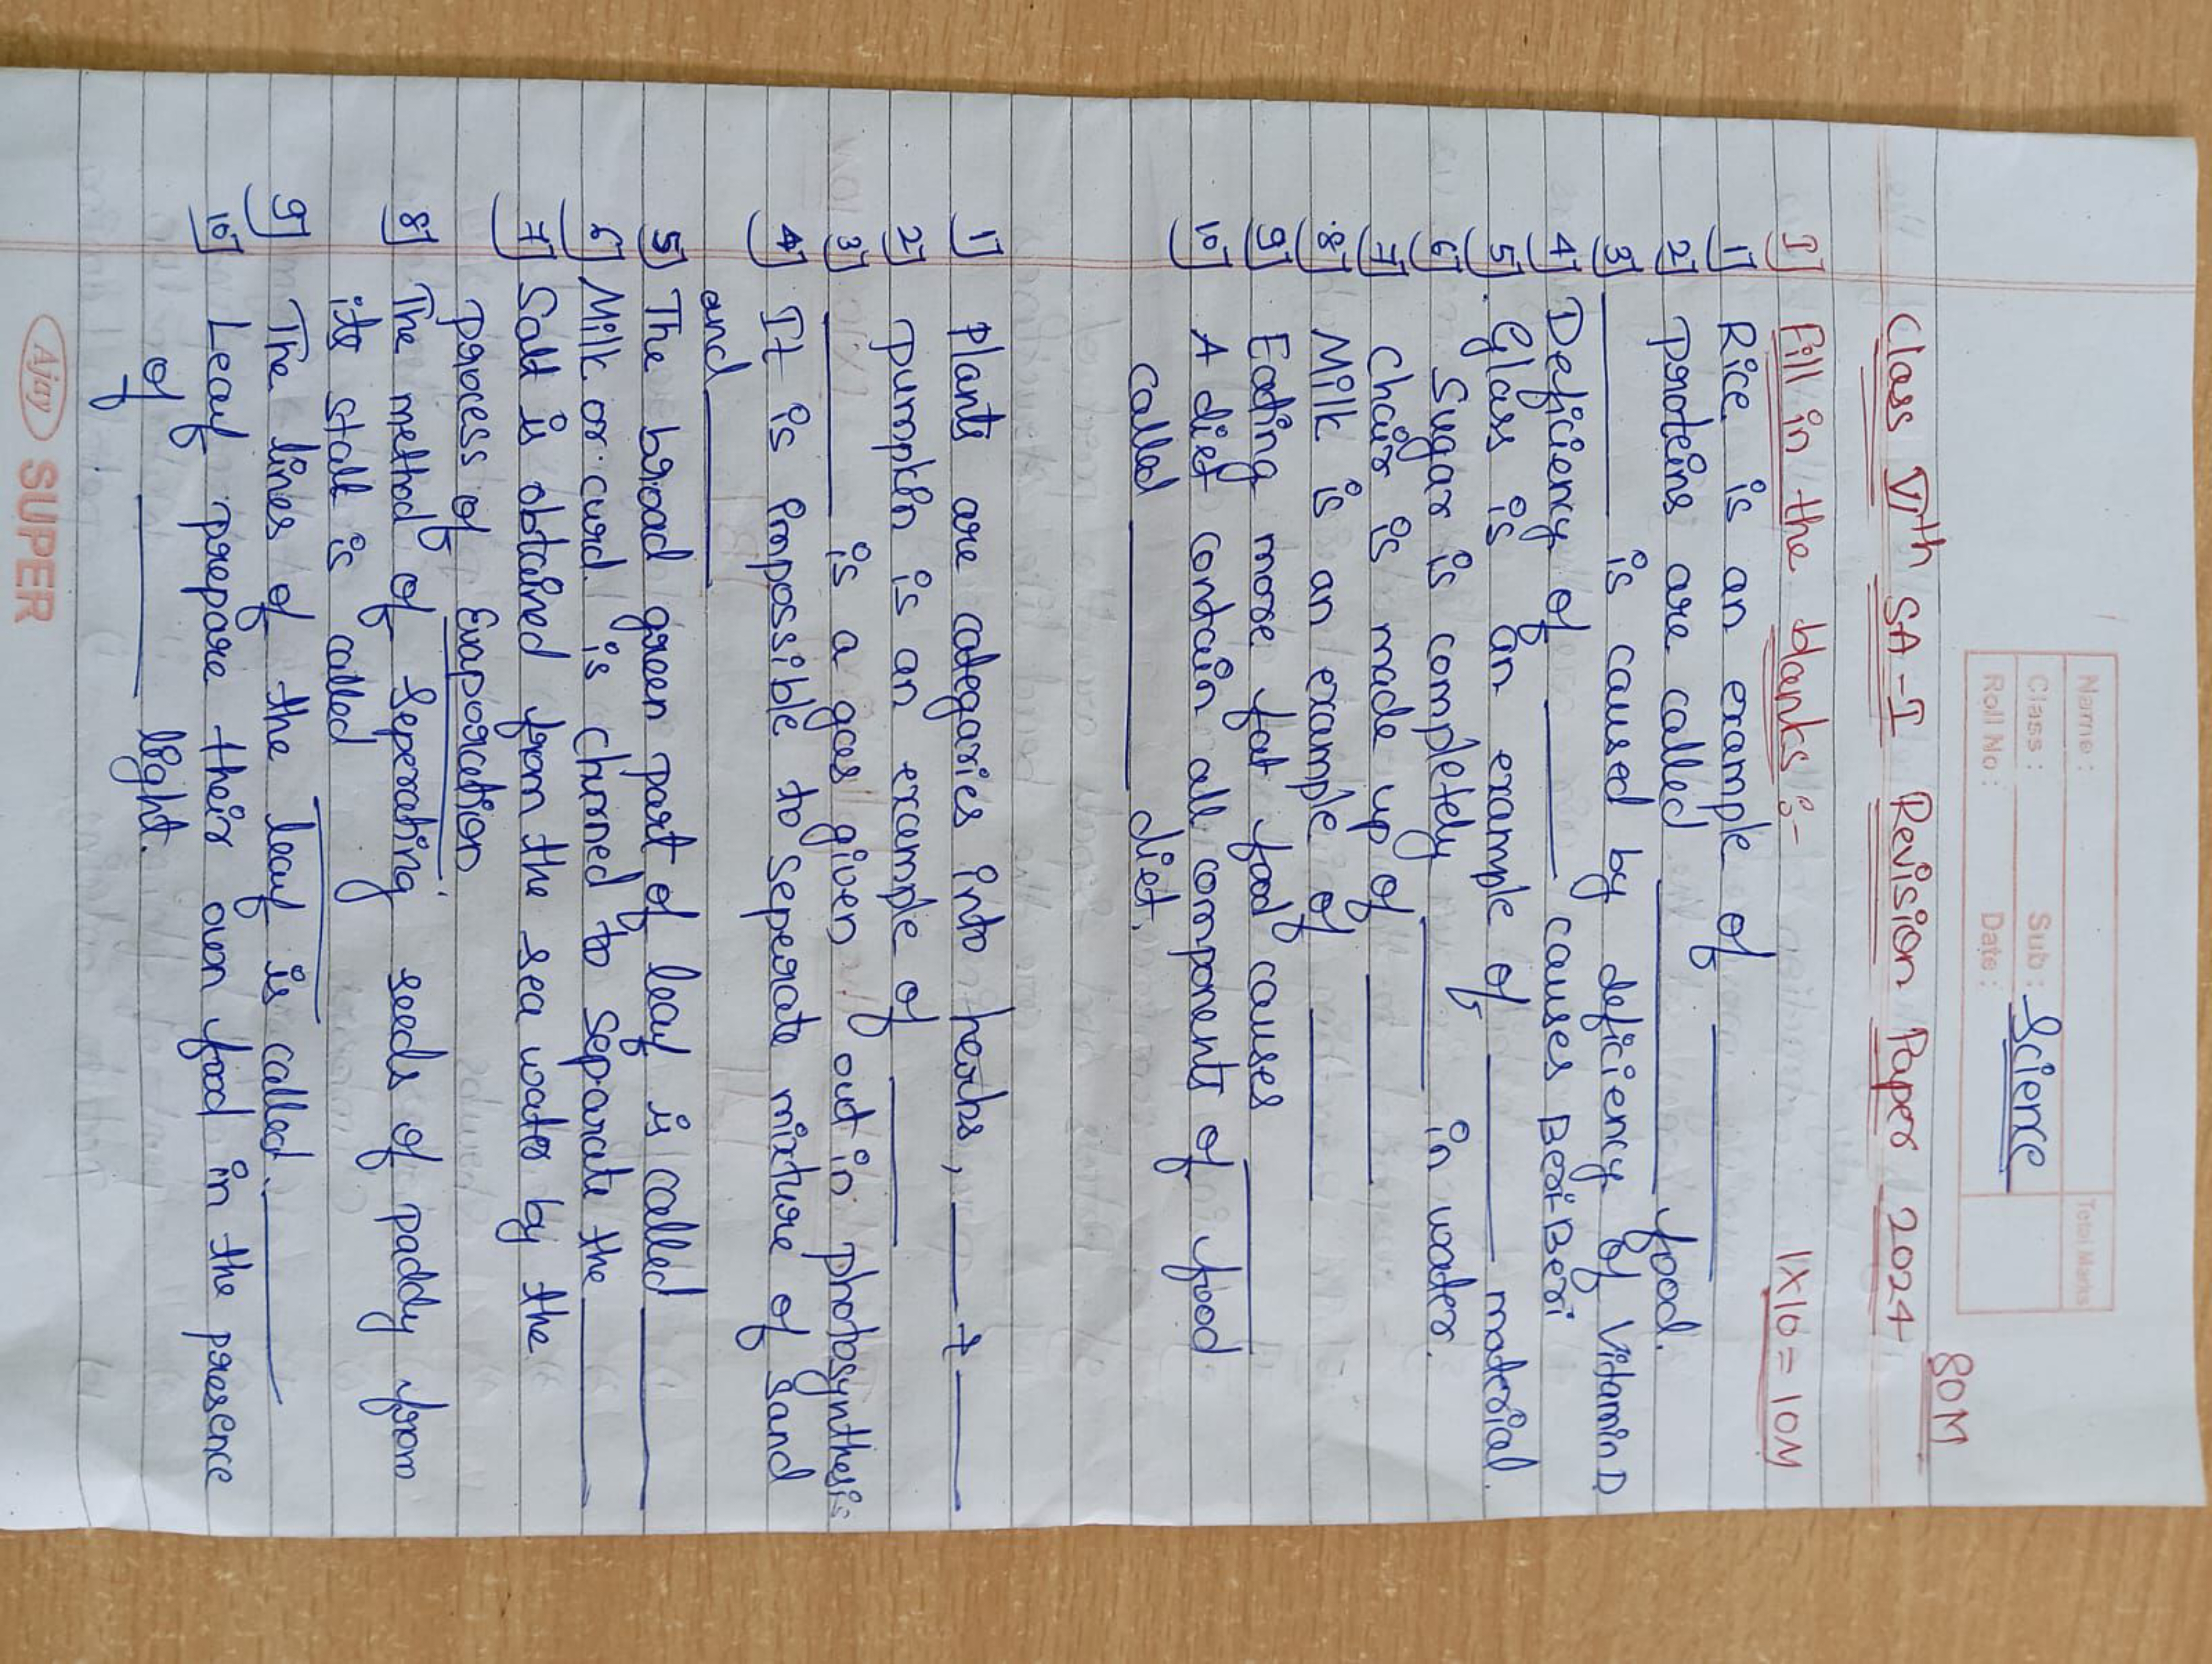 Name:
Class: Sub: Science
Roll No: Date:
Total Marks
80M
Class VIth SA-I Revision Paper 2024
I] Fill in the blanks :- 1X10=10M
1] Rice is an example of ______
2] proteins are called ______ food.
3] ______ is caused by deficiency of Vitamin D
4] Deficiency of ______ causes Beri-Beri
5] Glass is an example of ______ material.
6] Sugar is completely ______ in water.
7] Chair is made up of ______
8] Milk is an example of ______
9] Eating more fat food causes ______
10] A diet contain all components of food
called ______ diet.
1] Plants are categaries into herbs, ____ & ____
2] pumpkin is an example of ______
3] ______ is a gas given out in photosynthesis
4] It is impossible to seperate mixture of sand
and ______
5] The broad green part of leaf is called ______
6] Milk or curd is churned to separate the ______
7] Salt is obtained from the sea water by the
process of Evaporation
8] The method of seperating seeds of paddy from
its stalk is called ______
9] The lines of the leaf is called ______
10] Leaf prepare their own food in the presence
of ______ light.
Ajay SUPER